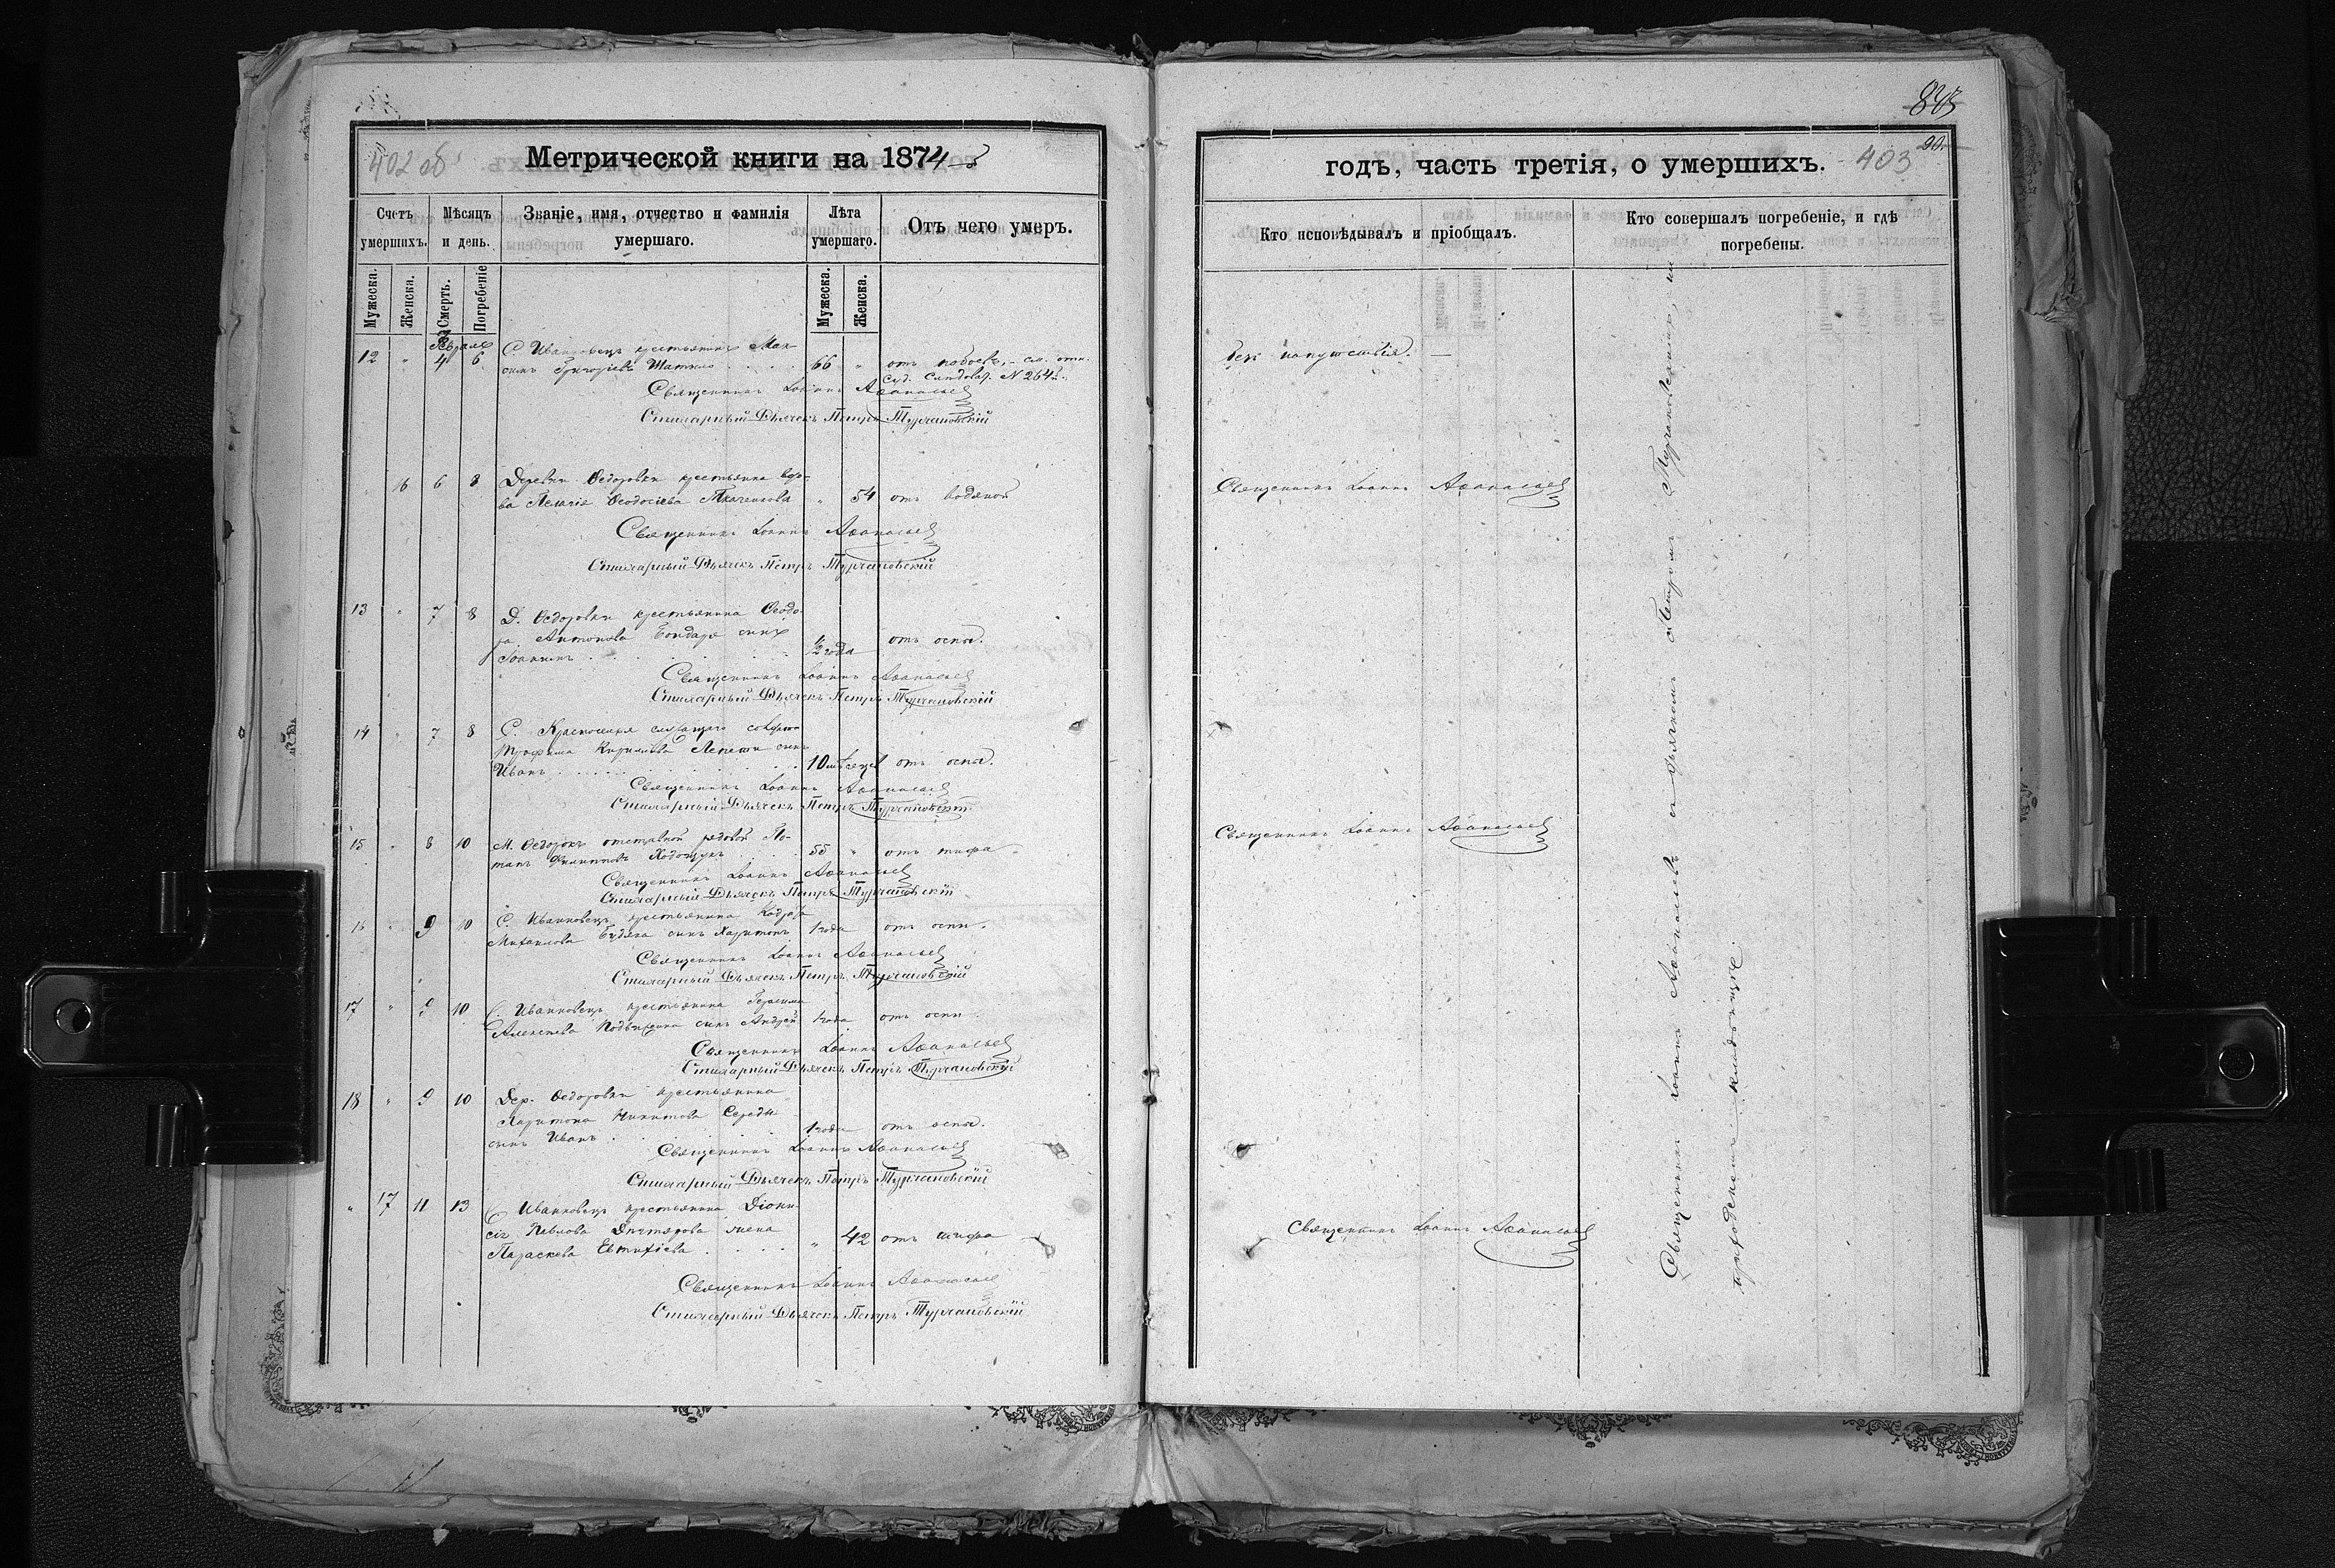 402 об
Метрической книги на 1874
Счетъ умершихъ.
Мѣсяцъ и день.
Званіе, имя, отчество и фамилія умершаго.
Лѣта умершаго.
Отъ чего умеръ.
Мужеска.
Женска.
Смерть.
Погребеніе
Мужеска.
Женска.
12 " 4 6 С. Ивановецъ крестьянинъ Мак-
симъ Григоріевъ 66 " отъ побоевъ, - см. отн.
Суд. Слѣдоват. № 264й.
Священникъ Іоаннъ Аѳанасьевъ
Стихарный Дьячекъ Петръ Турчановскій
" 16 6 8 Деревни Ѳедоровки крестьянка вдо-
ва Пелагія Ѳеодосіева Ткаченкова " 54 отъ водяной
Священникъ Іоаннъ Аѳанасьевъ
Стихарный Дьячекъ Петръ Турчановскій
13 " 7 8 Д. Ѳедоровки крестьянина Ѳеодо-
ра Антонова Бондаря сынъ
Іоаннъ 1/2 года отъ оспы.
Священникъ Іоаннъ Аѳанасьевъ
Стихарный Дьячекъ Петръ Турчановскій
14 " 7 8 С.
Трофима Кирилова сынъ
Иванъ 10 мѣсяцевъ отъ оспы.
Священникъ Іоаннъ Аѳанасьевъ
Стихарный Дьячекъ Петръ Турчановскій
15 " 8 10 М. отставной рядовой По-
тапъ Филиповъ 55 " отъ тифа
Священникъ Іоаннъ Аѳанасьевъ
Стихарный Дьячекъ Петръ Турчановскій
16 " 9 10 С. Ивановецъ крестьянина
Михаилова сынъ Харитонъ 1 года отъ оспы.
Священникъ Іоаннъ Аѳанасьевъ
Стихарный Дьячекъ Петръ Турчановскій
17 " 9 10 С. Ивановецъ крестьянина Герасима
Алексѣева сынъ Андрей 1 года отъ оспы
Священникъ Іоаннъ Аѳанасьевъ
Стихарный Дьячекъ Петръ Турчановскій
18 " 9 10 Дер. Ѳедоровки крестьянина
Харитона Никитова Середы
сынъ Иванъ 1 года отъ оспы.
Священникъ Іоаннъ Аѳанасьевъ
Стихарный Дьячекъ Петръ Турчановскій
" 17 11 13 С. Ивановецъ крестьянина Діони-
сія Павлова жена
Параскева Евтихіева " 42 отъ тифа
Священникъ Іоаннъ Аѳанасьевъ
Стихарный Дьячекъ Петръ Турчановскій
годъ, часть третія, о умершихъ.
403
90
Кто исповѣдывалъ и пріобщалъ.
Кто совершалъ погребеніе, и гдѣ погребены.
безъ напутствія. —
Священникъ Іоаннъ Аѳанасьевъ
Священникъ Іоаннъ Аѳанасьевъ
Священникъ Іоаннъ Аѳанасьевъ
Священникъ Іоаннъ Аѳанасьевъ съ дьячкомъ Петромъ Турчановскимъ, на
приходскомъ кладбищѣ.